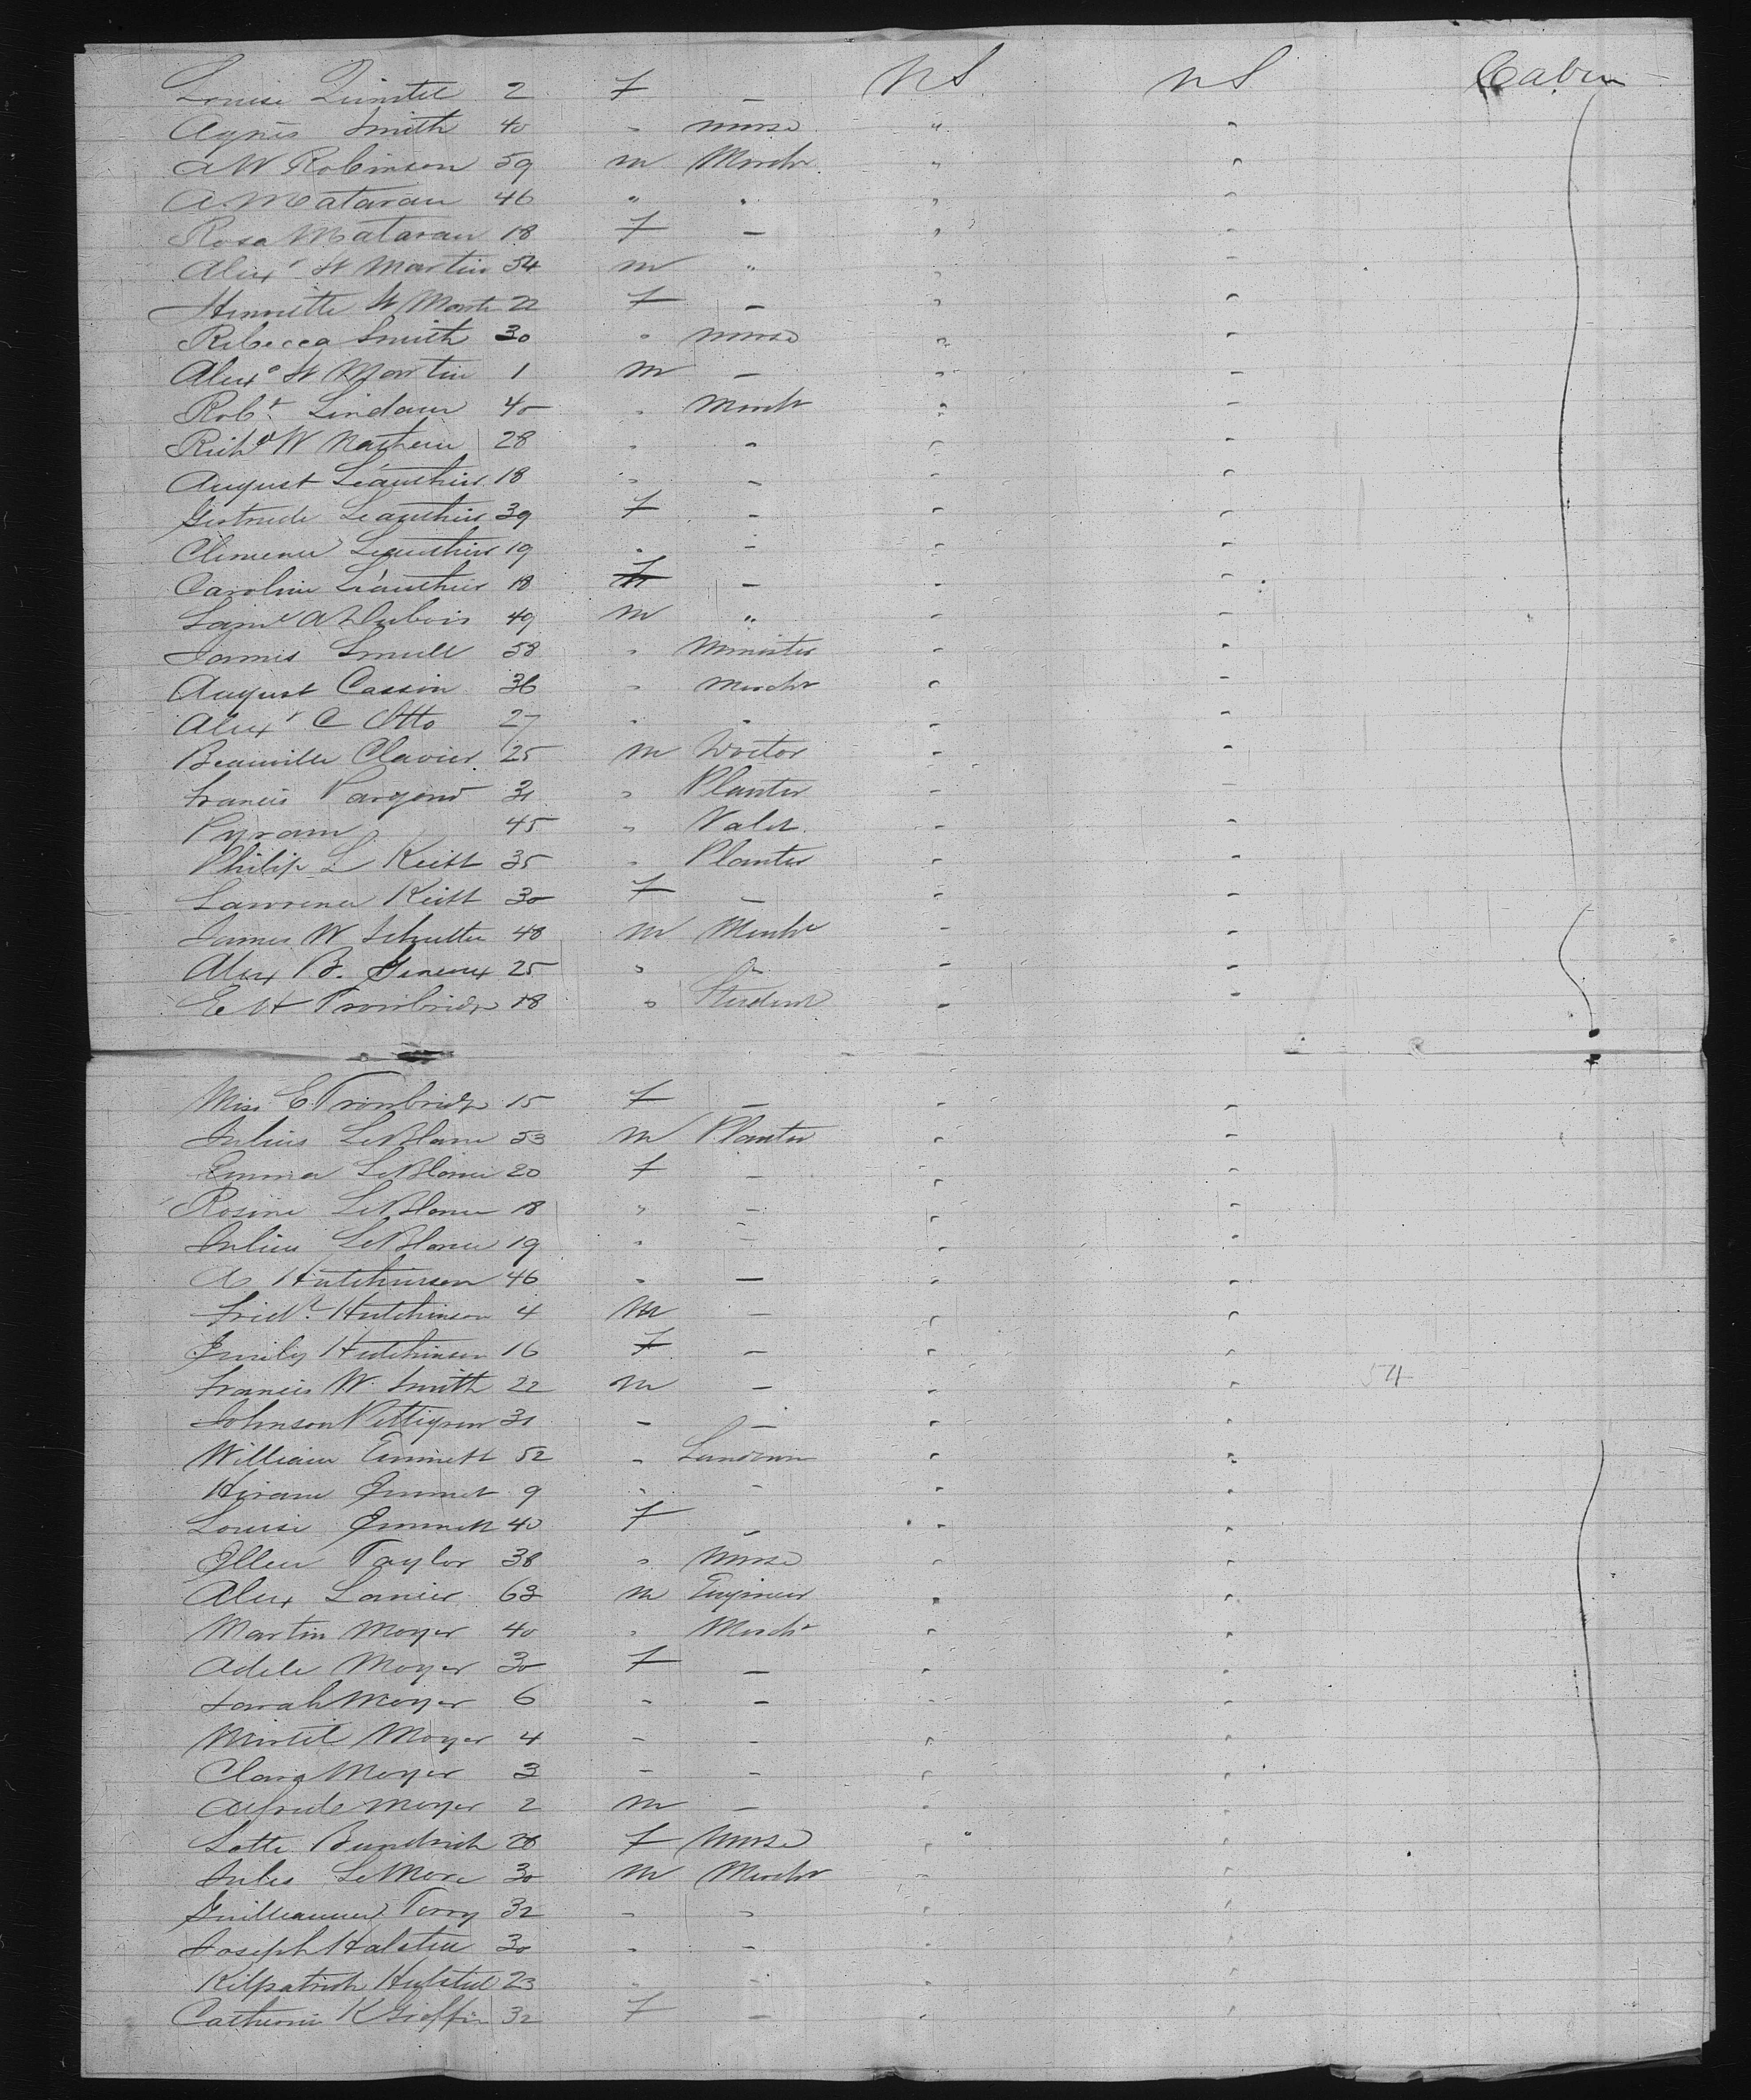 Louise Quintel 2 F — US US Cabin
Agnes Smith 40 " nurse " "
A W Robinson 59 m Mercht " "
A. Mataran 46 " " " "
Rosa Mataran 18 F — " "
Alexr St Martin 54 m " " "
Henriette St Martn 22 F — " "
Rebecca Smith 30 " nurse " "
Alexr St Martin 1 m — " —
Robt Lindaur 40 " Mercht " —
Richd W 28 " " " "
August Léauthier 18 " — " "
Gertrude Leauthier 39 F — " "
Leauthier 19 " — " "
Caroline Léauthier 18 F — " "
Saml A Dubois 49 m " " "
James Smull 58 " Minister " "
August Cassin 36 " Mercht " "
Alexr C Otto 27 " " " "
Beauville Clavier 25 m Doctor " "
Francis Pargoud 31 " Planter " "
Pyram 45 " Valet " "
Philip L Keitt 35 " Planter " "
Lawrence Keitt 30 F — " "
James W Schulter 48 m Mercht " "
Alex B. 25 " " " "
E H Trowbridge 18 " Student " "
Miss E Trowbridge 15 F — " "
Julius LeBlanc 53 m Planter " "
Emma LeBlanc 20 F — " "
Rosine LeBlanc 18 " — " "
Julius LeBlanc 19 " — " "
A Hutchinson 46 " — " "
Fredk Hutchinson 4 m — " "
Emily Hutchinson 16 F — " "
Francis W. Smith 22 m — " " 54
Johnson Pettigrew 31 — — " "
William Emmett 52 " " "
Hiram Emmet 9 " — " "
Louise Emmett 40 F — " "
Ellen Taylor 38 " Nurse " "
Alex Lanier 63 m Engineer " "
Martin Moyer 40 " Mercht " "
Adele Moyer 30 F — " "
Sarah Moyer 6 " — " "
Mirtil Moyer 4 — — " "
Clara Moyer 3 — — " "
Alfrede Moyer 2 m — " "
Lotte Bundrich 28 F Nurse " "
Jules LeMore 30 m Mercht " "
Guilleaumen Terry 32 " " " "
Joseph Halsten 30 " — " "
Kilpatrick 23 " — " "
Catherine K Griffin 32 F — " "